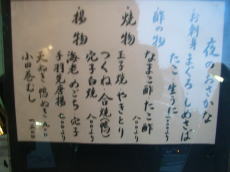 夜のおさかな
お刺身 まぐろ しめさば
たこ 生うに
酢の物
なまこ酢 たこ酢
焼物
玉子焼 やきとり
つくね 合焼(鴨)
穴子白焼
揚物
海老 めごち 穴子
手羽見唐揚
天ぬき 鴨ぬき
小田巻むし